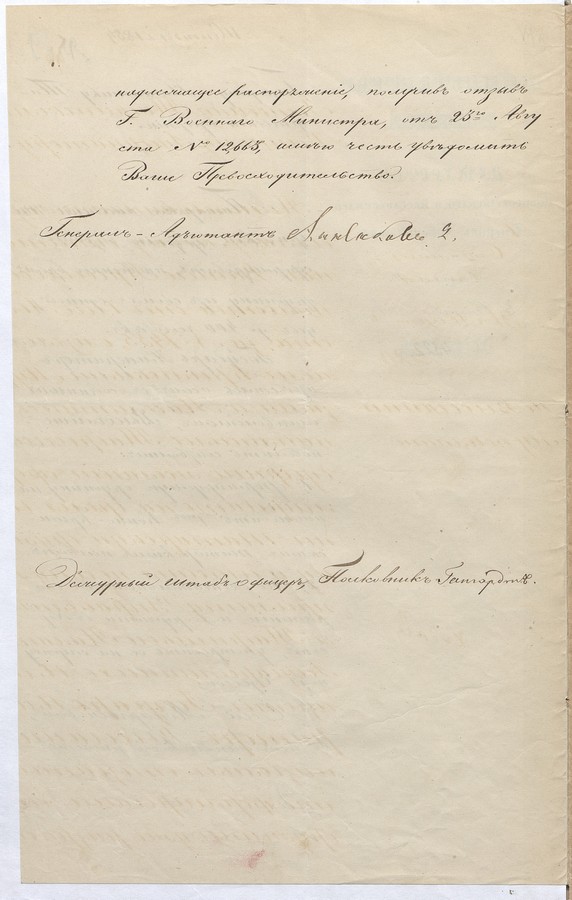 надлежащее распоряженіе, получивъ отзывъ
Г. Военнаго Министра, отъ 23го Авгу
ста № 12,665, имѣю честь увѣдомить
Ваше Превосходительство.
Генералъ-Адъютантъ Анненковъ 2.
Дежурный штабъ офицеръ, Полковникъ